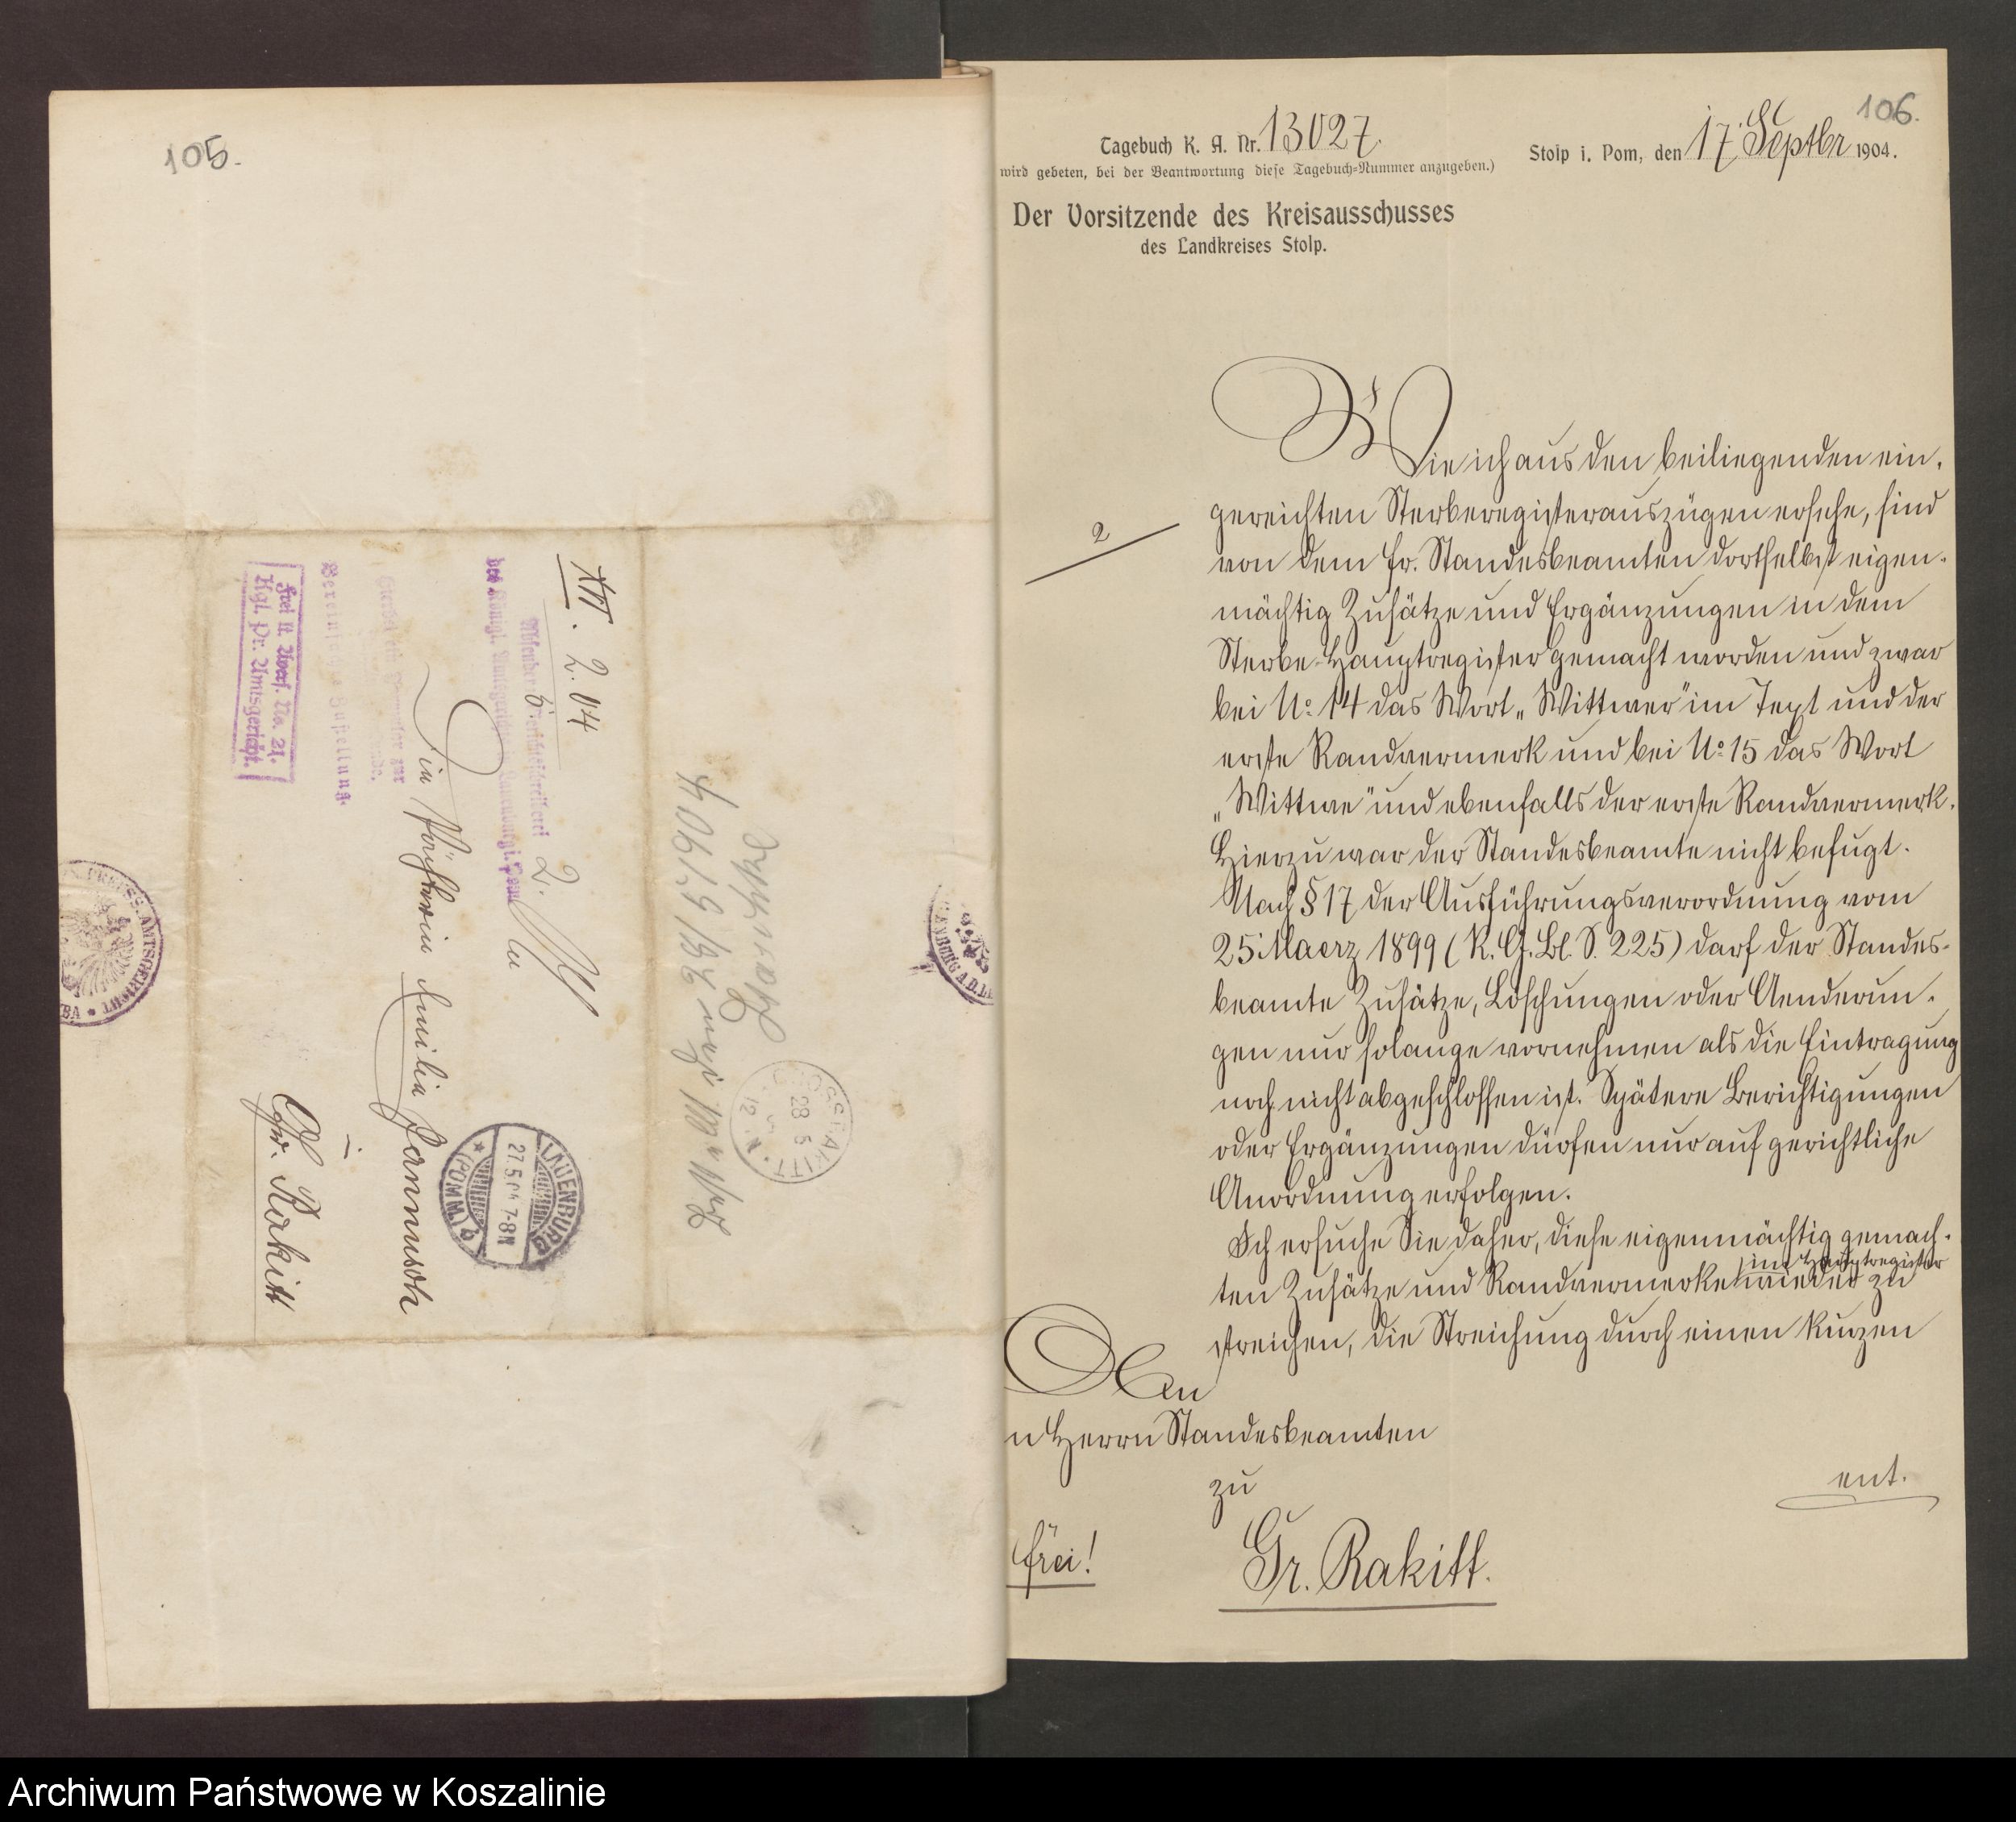 105.
Frei lt. Avers. No. 21.
Kgl. Pr. Amtsgericht.
Vereinfachte Zustellung.
XII. 2. 04
Absender: Gerichtsschreiberei 2.
des Königl. Amtsgerichts in Lauenburg i. Pom.
An
in
Emilie Jannusch
in
Gr. Rakitt
LAUENBURG
27.5.04 7-8N
(POMM.)
28/5 1904
GROSS RAKITT
28 5
PREUSS. AMTSGERICHT
106.
Tagebuch K. A. Nr. 13027.
wird gebeten, bei der Beantwortung diese Tagebuch-Nummer anzugeben.)
Stolp i. Pom, den 17. Septbr 1904.
Der Vorsitzende des Kreisausschusses
des Landkreises Stolp.
2
Wie ich aus den beiliegenden ein-
gereichten Sterberegisterauszügen ersehe, sind
von dem Hr. Standesbeamten dortselbst eigen-
mächtig Zusätze und Ergänzungen in dem
Sterbe-Hauptregister gemacht worden und zwar
bei No. 14 das Wort „Wittwer" im Text und der
erste Randvermerk und bei No. 15 das Wort
„Wittwe" und ebenfalls der erste Randvermerk.
Hierzu war der Standesbeamte nicht befugt.
Nach § 17 der Ausführungsverordnung vom
25. Maerz 1899 (R. G. Bl. S. 225) darf der Standes-
beamte Zusätze, Löschungen oder Aenderun-
gen nur solange vornehmen als die Eintragung
noch nicht abgeschlossen ist. Spätere Berichtigungen
oder Ergänzungen dürfen nur auf gerichtliche
Anordnung erfolgen.
Ich ersuche Sie daher, diese eigenmächtig gemach-
ten Zusätze und Randvermerke im Hauptregister wieder zu
streichen, die Streichung durch einen kurzen
An
n Herrn Standesbeamten
zu
Gr. Rakitt.
frei!
ent.
Archiwum Państwowe w Koszalinie